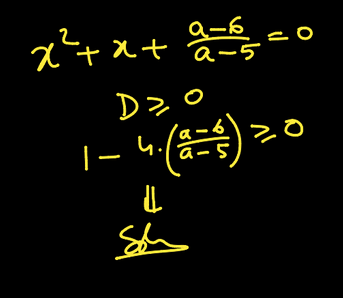 x² + x + (a-6)/(a-5) = 0
D ≥ 0
1 - 4·((a-6)/(a-5)) ≥ 0
⇓